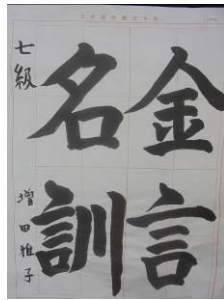 金言
名訓
七級 増田雅子